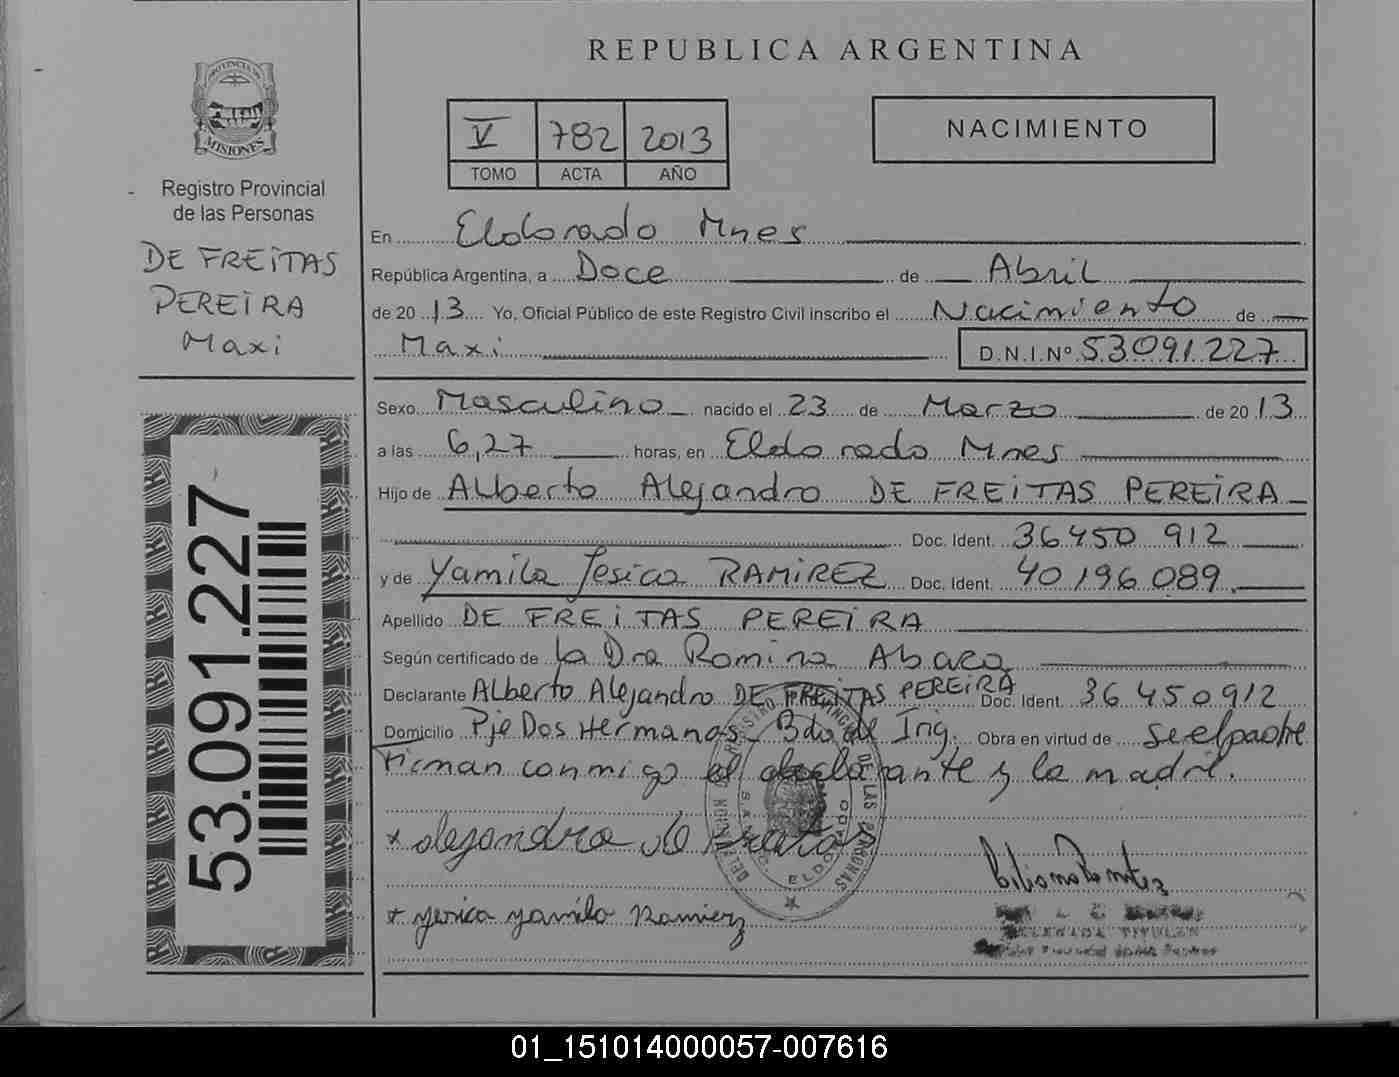 REPUBLICA ARGENTINA
PROVINCIA DE
MISIONES
Registro Provincial
de las Personas
DE FREITAS
PEREIRA
Maxi
V 782 2013
TOMO ACTA AÑO
NACIMIENTO
En Eldorado Mnes
República Argentina, a Doce de Abril
de 2013 Yo, Oficial Público de este Registro Civil inscribo el Nacimiento de
Maxi D.N.I.Nº 53091.227
Sexo Masculino nacido el 23 de Marzo de 2013
a las 6,27 horas, en Eldorado Mnes
Hijo de Alberto Alejandro DE FREITAS PEREIRA
Doc. Ident. 36450 912
y de Yamila Jesica RAMIREZ Doc. Ident. 40 196 089
Apellido DE FREITAS PEREIRA
Según certificado de la Dra Romina Abaca
Declarante Alberto Alejandro DE FREITAS PEREIRA Doc. Ident. 36 450 912
Domicilio Pje Dos Hermanas Bdo de Ing. Obra en virtud de ser el padre
Firman conmigo el declarante y la madre.
53.091.227
x alejandro de
x yesica yamila Ramirez
DELEGADA TITULAR
ELDORADO
01_151014000057-007616